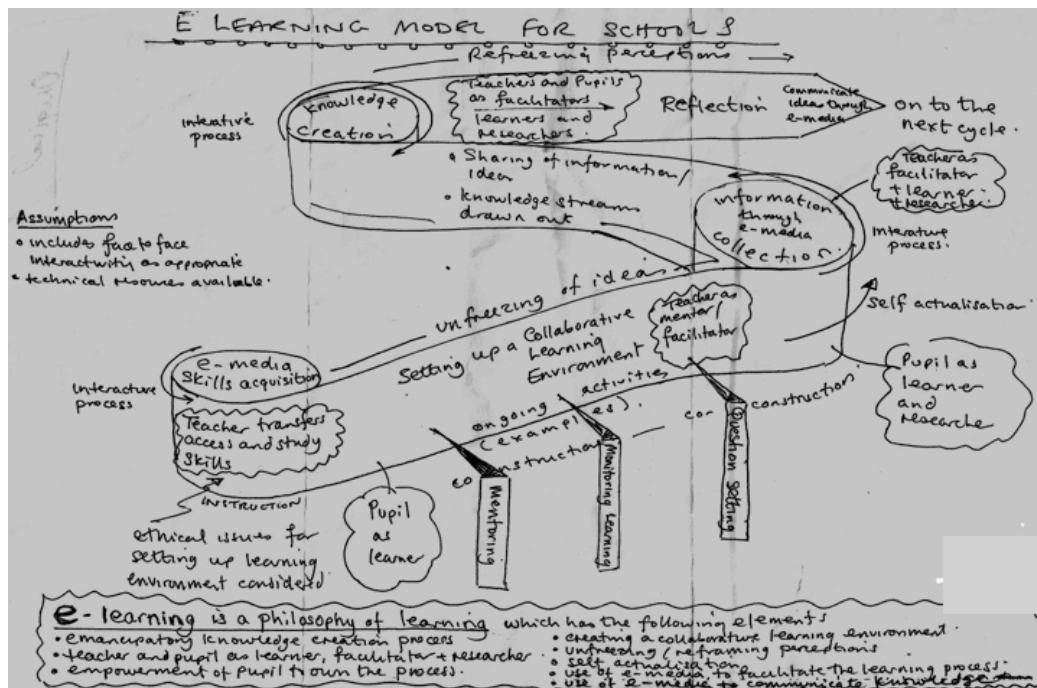 E LEARNING MODEL FOR SCHOOLS
Refreezing perceptions
Knowledge
creation
Interative
process
Teachers and Pupils
as facilitators
learners and
researchers.
Reflection
Communicate
ideas through
e-media
on to the
next cycle.
• Sharing of information/
ideas
• Knowledge streams
drawn out
Teacher as
facilitator
+ learner
+ researcher
information
through
e-media
collection
Interature
process.
Assumptions
• includes face to face
interactivity as appropriate
• technical resources available.
unfreezing of ideas
Setting up a Collaborative
Learning
Environment
Teacher as
mentor/
facilitator
self actualisation
e-media
skills acquisition
Interacture
process
Teacher transfers
access and study
skills
ongoing activities
(examples).
co construction
co-construction
Pupil as
learner
and
researcher
INSTRUCTION
Pupil
as
learner
Mentoring
Monitoring Learning
Question Setting
ethical issues for
setting up learning
environment considered
e-learning is a philosophy of learning which has the following elements
• emancipatory knowledge creation process
• teacher and pupil as learner, facilitator + researcher
• empowerment of pupil to own the process.
• creating a collaborative learning environment
• unfreezing / reframing perceptions
• self actualisation
• use of e-media, to facilitate the learning process.
• use of e-media to communicate knowledge